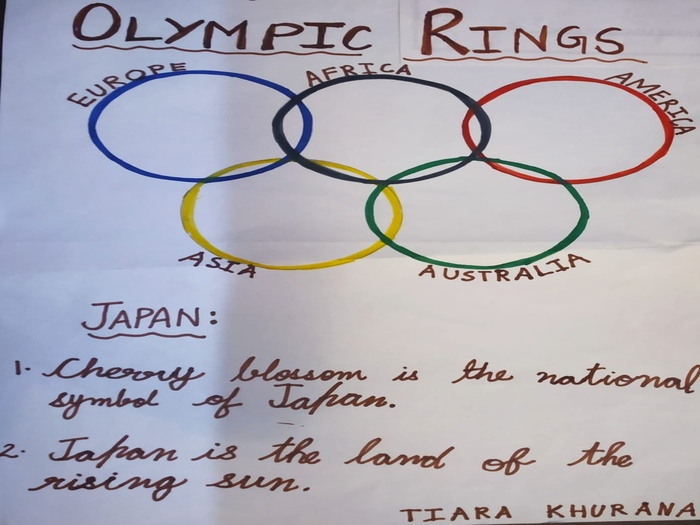 OLYMPIC RINGS
EUROPE
AFRICA
AMERICA
ASIA
AUSTRALIA
JAPAN:
1. Cherry blossom is the national
symbol of Japan.
2. Japan is the land of the
rising sun.
TIARA KHURANA